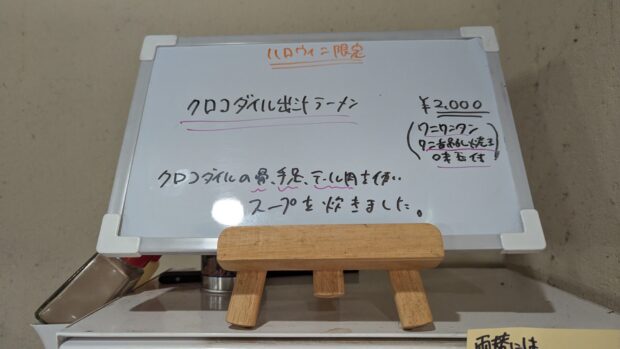 ハロウィン限定
クロコダイル出汁ラーメン
¥2,000
ワニワンタン
味玉付
クロコダイルの骨、手足、テール肉を使い
スープを炊きました。
両替には